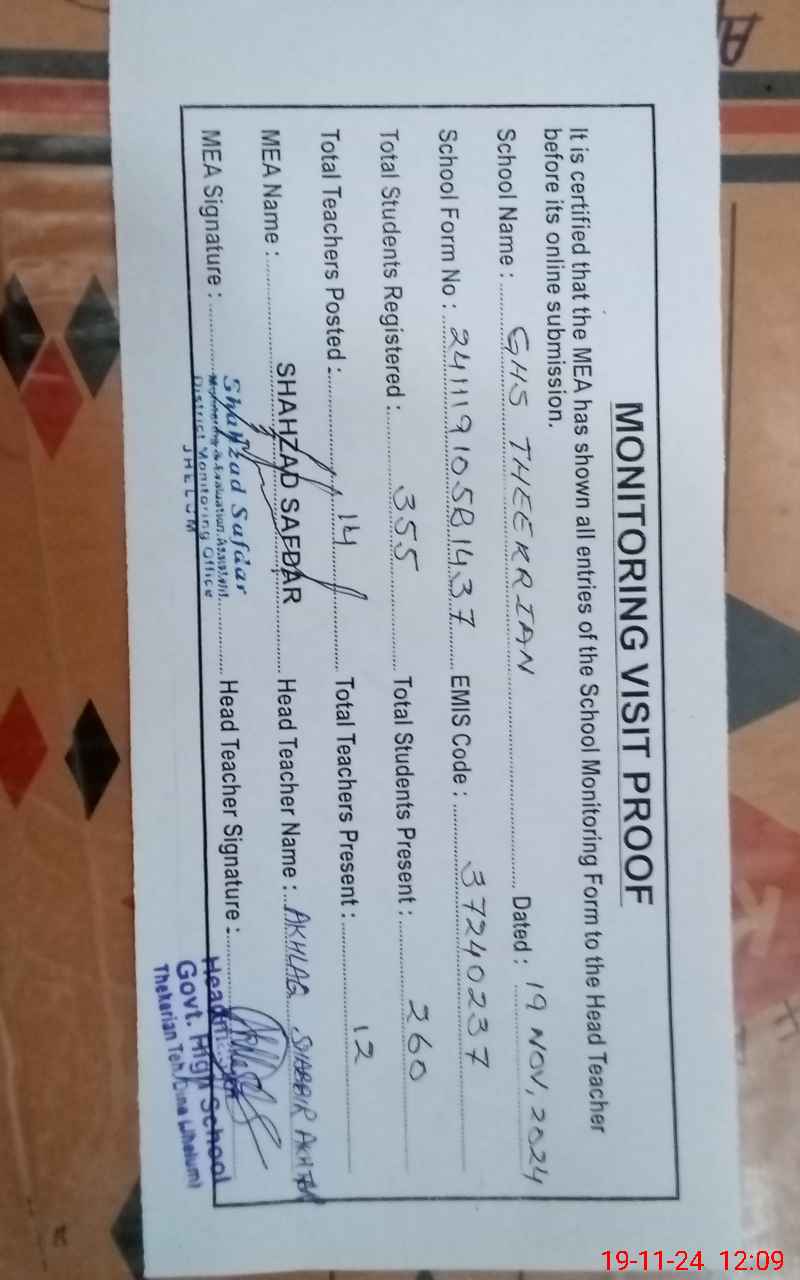 MONITORING VISIT PROOF
It is certified that the MEA has shown all entries of the School Monitoring Form to the Head Teacher
before its online submission.
School Name : GHS THEEKRIAN Dated : 19 NOV, 2024
School Form No : EMIS Code : 37240237
Total Students Registered : 355 Total Students Present : 260
Total Teachers Posted : 14 Total Teachers Present : 12
MEA Name : SHAHZAD SAFDAR Head Teacher Name : AKHLAQ SHABBIR AKHTAR
MEA Signature : Head Teacher Signature :
Shahzad Safdar
Monitoring & Evaluation Assistant
District Monitoring Office
JHELUM
Govt. High School
Thekarian Teh. Dina (Jhelum)
19-11-24 12:09